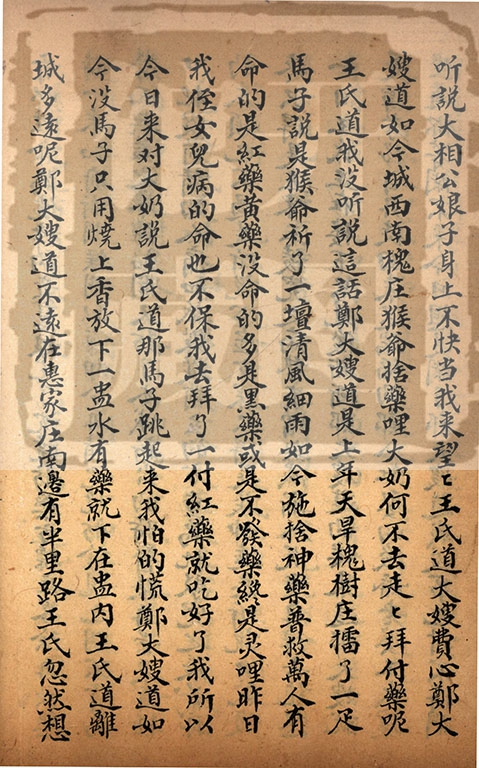 听说大相公娘子身上不快当我来望〻王氏道大嫂费心鄭大
嫂道如今城西南槐庄猴爺捨藥哩大奶何不去走〻拜付藥呢
王氏道我没听説這話鄭大嫂道是上年天旱槐樹庄擂了一疋
馬子説是猴爺祈了一壇清風細雨如今施捨神藥普救萬人有
命的是紅藥黄藥没命的多是黑藥或是不發藥緫是灵哩昨日
我侄女兒病的命也不保我去拜了一付紅藥就吃好了我所以
今日来对大奶説王氏道那馬子跳起来我怕的慌鄭大嫂道如
今没馬子只用燒上香放下一盅水有藥就下在盅内王氏道離
城多遠呢鄭大嫂道不遠在惠家庄南邊有半里路王氏忽然想